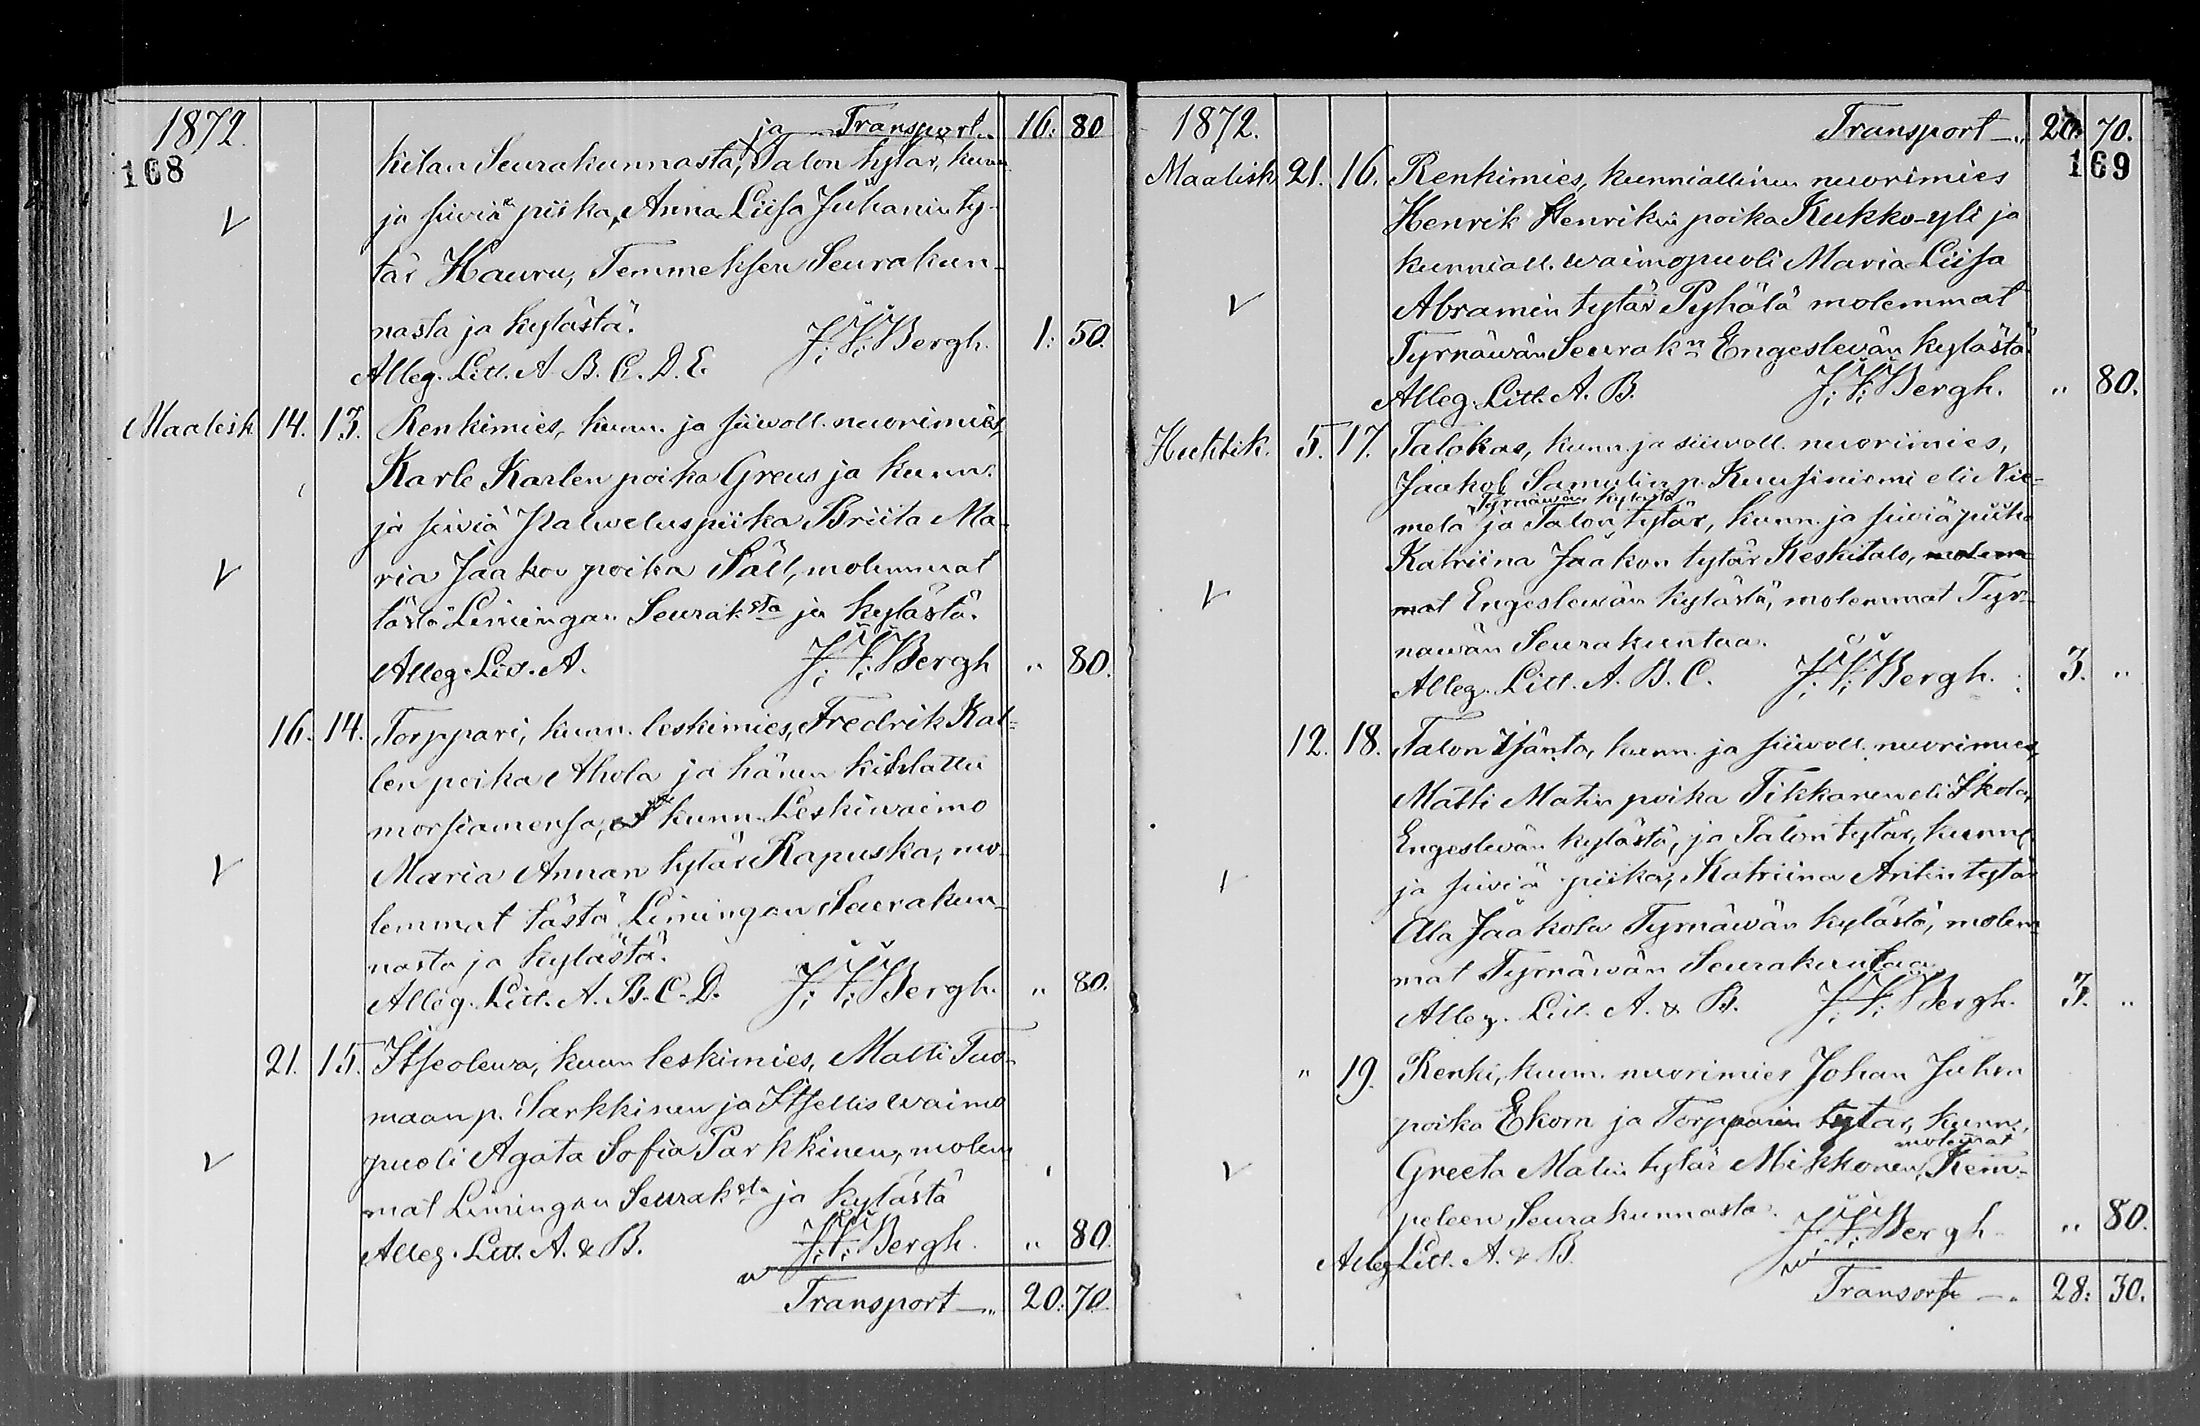 1872. ja Transport 16: 80
168
kilan Seurakunnasta, Talon tytär, kunn.
ja siviä piika, Anna Liisa Juhanin ty-
tär Hauru, Temmeksen Seurakun-
nasta ja kylästä.
Alleg. Litt. A. B. C. D. E. J. V. Bergh. 1: 50.
Maalisk. 14. 13. Renkimies, kunn. ja siiwoll. nuorimies,
Karle Kaarlen poika Greus ja kunn.
ja siviä Palweluspiika Briita Ma-
ria Jaakon poika Säll, molemmat
tästä Limingan Seurak:sta ja kylästä.
Alleg. Lit. A. J. V. Bergh „ 80.
16. 14. Torppari, kunn. leskimies, Fredrik Kal-
len poika Ahola ja hänen kihlattu
morsiamensa, kunn. Leskiwaimo
Maria Annan tytär Rapuska, mo-
lemmat tästä Limingan Seurakun-
nasta ja kylästä.
Alleg. Litt. A. B. C. D. J. V. Bergh. „ 80.
21. 15. Itseolewa, kunn leskimies, Matti Tuo-
maan p. Sarkkinen ja Itsellis waimo
puoli Agata Sofia Parkkinen, molem
mat Limingan Seurak:sta ja kylästä
Alleg. Litt. A. & B. J. V. Bergh. „ 80.
Transport 20: 70.
1872. Transport 20: 70.
169
Maalisk 21. 16. Renkimies, kunniallinen nuorimies
Henrik Henrikin poika Kukko-yli ja
kunniall. waimopuoli Maria Liisa
Abramin tytär Pyhälä molemmat
Tyrnäwän Seurak:n Engeslevän kylästä.
Alleg. Litt. A. B. J. V. Bergh. „ 80.
Huhtik. 5. 17. Talokas, kunn. ja siiwoll. nuorimies,
Jaakob Samulin p. Kuusiniemi eli Nie-
Tyrnäwän kylästä
melä ja Talon tytär, kunn. ja siviä piika
Katriina Jaakon tytär Keskitalo, molem
mat Engeslewän kylästä, molemmat Tyr-
näwän Seurakuntaa.
Alleg. Litt. A. B. C. J. V. Bergh. 3. „
12. 18. Talon Isäntä, kunn. ja siiwoll. nuorimies,
Matti Matin poika Tikkanen eli Skola,
Engeslevän kylästä, ja Talon tytär, kunn.
ja siviä piika, Katriina Antin tytär
Ala Jaakola Tyrnäwän kylästä, molem-
mat Tyrnäwän Seurakuntaa.
Alleg. Lit. A. & B. J. V. Bergh. 3. „
„ 19. Renki, kunn. nuorimies Johan Juhon
poika Ekorn ja Torpparin tytar, kunn.
molemat
Greeta Matin tytär Mikkonen, Kem-
peleen Seurakunnasta. J. V. Bergh. „ 80.
Alleg Litt. A. & B.
Transort 28: 30.